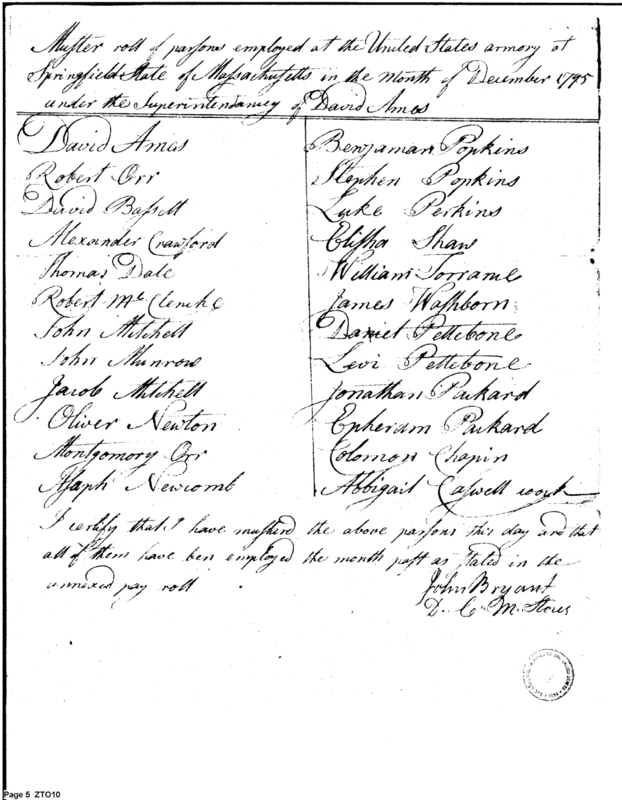 Muster roll of parsons employed at the United States armory at
Springfield State of Massachusetts in the month of December 1795
under the Superintendancy of David Ames
David Ames
Robert Orr
David Bassett
Alexander Crawford
Thomas Dale
Robert McClenche
John Mitchell
John Munrow
Jacob Mitchell
Oliver Newton
Montgomory Orr
Asaph Newcomb
Benjaman Popkins
Stephen Popkins
Luke Perkins
Elisha Shaw
William Torrance
James Washborn
Daniel Pettebone
Levi Pettebone
Jonathan Packard
Epheram Packard
Colomon Chapin
Abbigail Caswell cook
I certify that I have musterd the above parsons this day and that
all of them have ben employed the month past as stated in the
annexed pay roll
John Bryant
D. C. M. Stores
Page 5 ZTO10